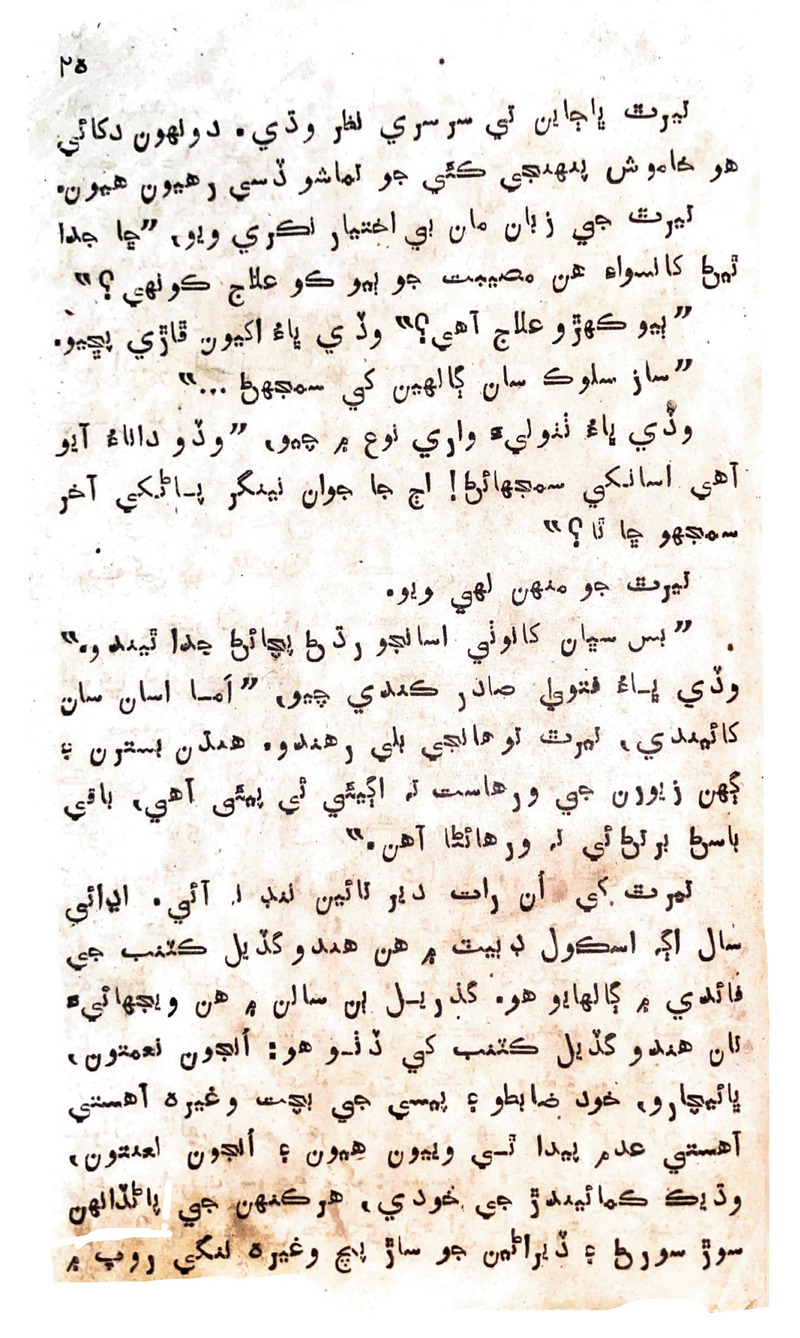 ۲۵
تيرٿ ڀاڄاين تي سرسري نظر وڌي. دونهون دکائي
هو خاموش پنهنجي ڪئي جو تماشو ڏسي رهيون هيون.
تيرٿ جي زبان مان بي اختيار نڪري ويو، ”ڇا جدا
ٿيڻ کانسواءِ هن مصيبت جو ٻيو ڪو علاج ڪونهي؟“
”ٻيو ڪهڙو علاج آهي؟“ وڏي ڀاءُ اکيون ڦاڙي پڇيو.
”ساز سلوڪ سان ڳالهين کي سمجهڻ ...“
وڏي ڀاءُ ٺٺوليءَ واري نوع ۾ چيو، ”وڏو داناءُ آيو
آهي اسانکي سمجهائڻ! اڄ جا جوان نينگر پاڻکي آخر
سمجهو ڇا ٿا؟“
تيرٿ جو منهن لهي ويو.
”بس سڀان کانوٺي اسانجو رڌڻ پچائڻ جدا ٿيندو.“
وڏي ڀاءُ فتويٰ صادر ڪندي چيو، ”اَما اسان سان
کائيندي، تيرٿ توهانجي بلي رهندو. هنڌن بسترن ۽
ڳهن زيورن جي ورهاست ته اڳيئي ٿي پيئي آهي، باقي
باسڻ برتڻ ئي ته ورهائڻا آهن.“
تيرٿ کي اُن رات دير تائين ننڊ نه آئي. اڍائي
سال اڳ، اسڪول ڊبيٽ ۾ هن هندو گڏيل ڪٽنب جي
فائدي ۾ ڳالهايو هو. گذريل ٻن سالن ۾ هن ويجهائيءَ
تان هندو گڏيل ڪٽنب کي ڏٺو هو: اُنجون نعمتون،
ڀائيچارو، خود ضابطو ۽ پيسي جي بچت وغيره آهستي
آهستي عدم پيدا ٿي وييون هيون ۽ اُنجون لعنتون،
وڌيڪ ڪمائيندڙ جي خودي، هرڪنهن جي پاڻڏانهن
سوڙ سورڻ ۽ ڏيراڻين جو ساڙ پچ وغيره ننگي روپ ۾